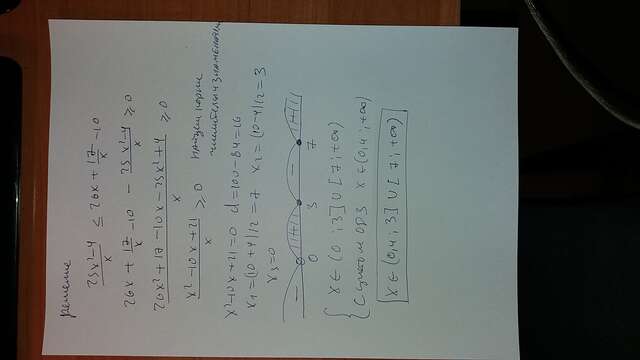 решение
(25x²-4)/x ≤ 26x + 17/x - 10
26x + 17/x - 10 - (25x²-4)/x ≥ 0
(26x² + 17 - 10x - 25x² + 4)/x ≥ 0
(x² - 10x + 21)/x ≥ 0 найдем корни числителя и знаменателя
x² - 10x + 21 = 0 d = 100 - 84 = 16
x1 = (10+4)/2 = 7 x2 = (10-4)/2 = 3
x3 = 0
- + - +
0 3 7
{ x ∈ (0 ; 3] ∪ [7 ; +∞)
С учетом ОДЗ x ∈ (0,4 ; +∞)
x ∈ (0,4 ; 3] ∪ [7 ; +∞)